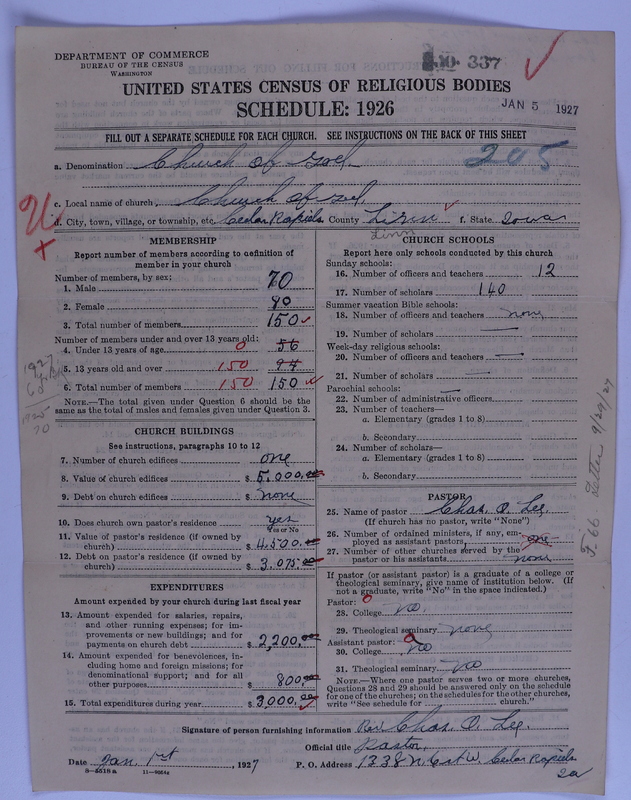 DEPARTMENT OF COMMERCE
BUREAU OF THE CENSUS
WASHINGTON
337
UNITED STATES CENSUS OF RELIGIOUS BODIES
SCHEDULE: 1926
JAN 5 1927
FILL OUT A SEPARATE SCHEDULE FOR EACH CHURCH. SEE INSTRUCTIONS ON THE BACK OF THIS SHEET
a. Denomination Church of God.
205
c. Local name of church Church of God.
d. City, town, village, or township, etc. Cedar Rapids County Linn f. State Iowa
Linn
MEMBERSHIP
Report number of members according to definition of member in your church
Number of members, by sex:
1. Male 70
2. Female 80
3. Total number of members 150
Number of members under and over 13 years old:
4. Under 13 years of age 0 56
5. 13 years old and over 150 94
6. Total number of members 150 150
NOTE.—The total given under Question 6 should be the same as the total of males and females given under Question 3.
CHURCH BUILDINGS
See instructions, paragraphs 10 to 12
7. Number of church edifices one
8. Value of church edifices $ 5,000.00
9. Debt on church edifices $ none
10. Does church own pastor's residence yes
Yes or No
11. Value of pastor's residence (if owned by church) $ 4,500.00
12. Debt on pastor's residence (if owned by church) $ 3,075.00
EXPENDITURES
Amount expended by your church during last fiscal year
13. Amount expended for salaries, repairs, and other running expenses; for improvements or new buildings; and for payments on church debt $ 2,200.00
14. Amount expended for benevolences, including home and foreign missions; for denominational support; and for all other purposes $ 800.00
15. Total expenditures during year $ 3,000.00
CHURCH SCHOOLS
Report here only schools conducted by this church
Sunday schools:
16. Number of officers and teachers 12
17. Number of scholars 140
Summer vacation Bible schools:
18. Number of officers and teachers none
19. Number of scholars
Week-day religious schools:
20. Number of officers and teachers
21. Number of scholars
Parochial schools:
22. Number of administrative officers
23. Number of teachers—
a. Elementary (grades 1 to 8)
b. Secondary
24. Number of scholars—
a. Elementary (grades 1 to 8)
b. Secondary
PASTOR
25. Name of pastor Chas. O. Lee.
(If church has no pastor, write "None")
26. Number of ordained ministers, if any, employed as assistant pastors one
27. Number of other churches served by the pastor or his assistants none
If pastor (or assistant pastor) is a graduate of a college or theological seminary, give name of institution below. (If not a graduate, write "No" in the space indicated.)
Pastor:
28. College no.
29. Theological seminary none
Assistant pastor:
30. College no
31. Theological seminary no
NOTE.—Where one pastor serves two or more churches, Questions 28 and 29 should be answered only on the schedule for one of the churches; on the schedules for the other churches, write "See schedule for ______ church."
Signature of person furnishing information Rev. Chas. O. Lee.
Official title Pastor.
Date Jan. 1st, 1927 P. O. Address 1338 N. 1st W. Cedar Rapids
Ia
8-5518 a 11-9004
1927
1925
70
Letter 9/29/27